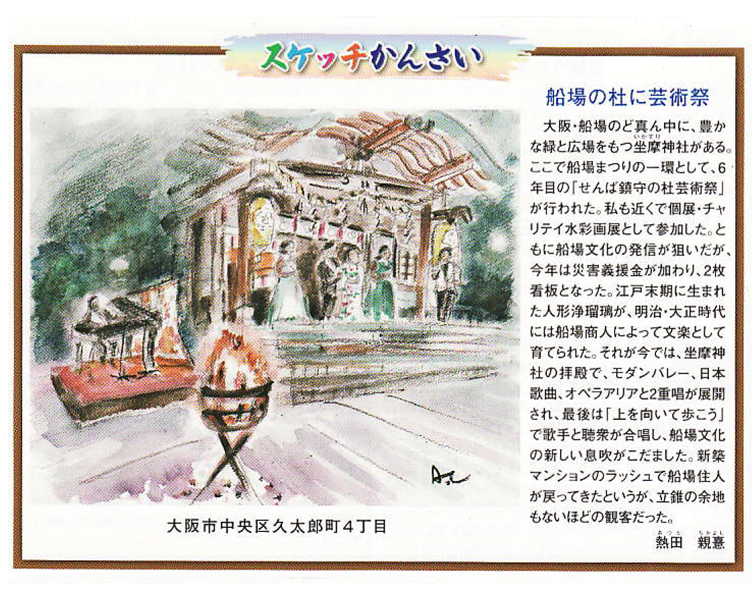 スケッチかんさい
船場の杜に芸術祭
大阪・船場のど真ん中に、豊か
な緑と広場をもつ坐摩神社がある。
いかすり
ここで船場まつりの一環として、6
年目の「せんば鎮守の杜芸術祭」
が行われた。私も近くで個展・チャ
リテイ水彩画展として参加した。と
もに船場文化の発信が狙いだが、
今年は災害義援金が加わり、2枚
看板となった。江戸末期に生まれ
た人形浄瑠璃が、明治・大正時代
には船場商人によって文楽として
育てられた。それが今では、坐摩神
社の拝殿で、モダンバレー、日本
歌曲、オペラアリアと2重唱が展開
され、最後は「上を向いて歩こう」
で歌手と聴衆が合唱し、船場文化
の新しい息吹がこだました。新築
マンションのラッシュで船場住人
が戻ってきたというが、立錐の余地
もないほどの観客だった。
あつた ちかよし
熱田 親憙
大阪市中央区久太郎町4丁目